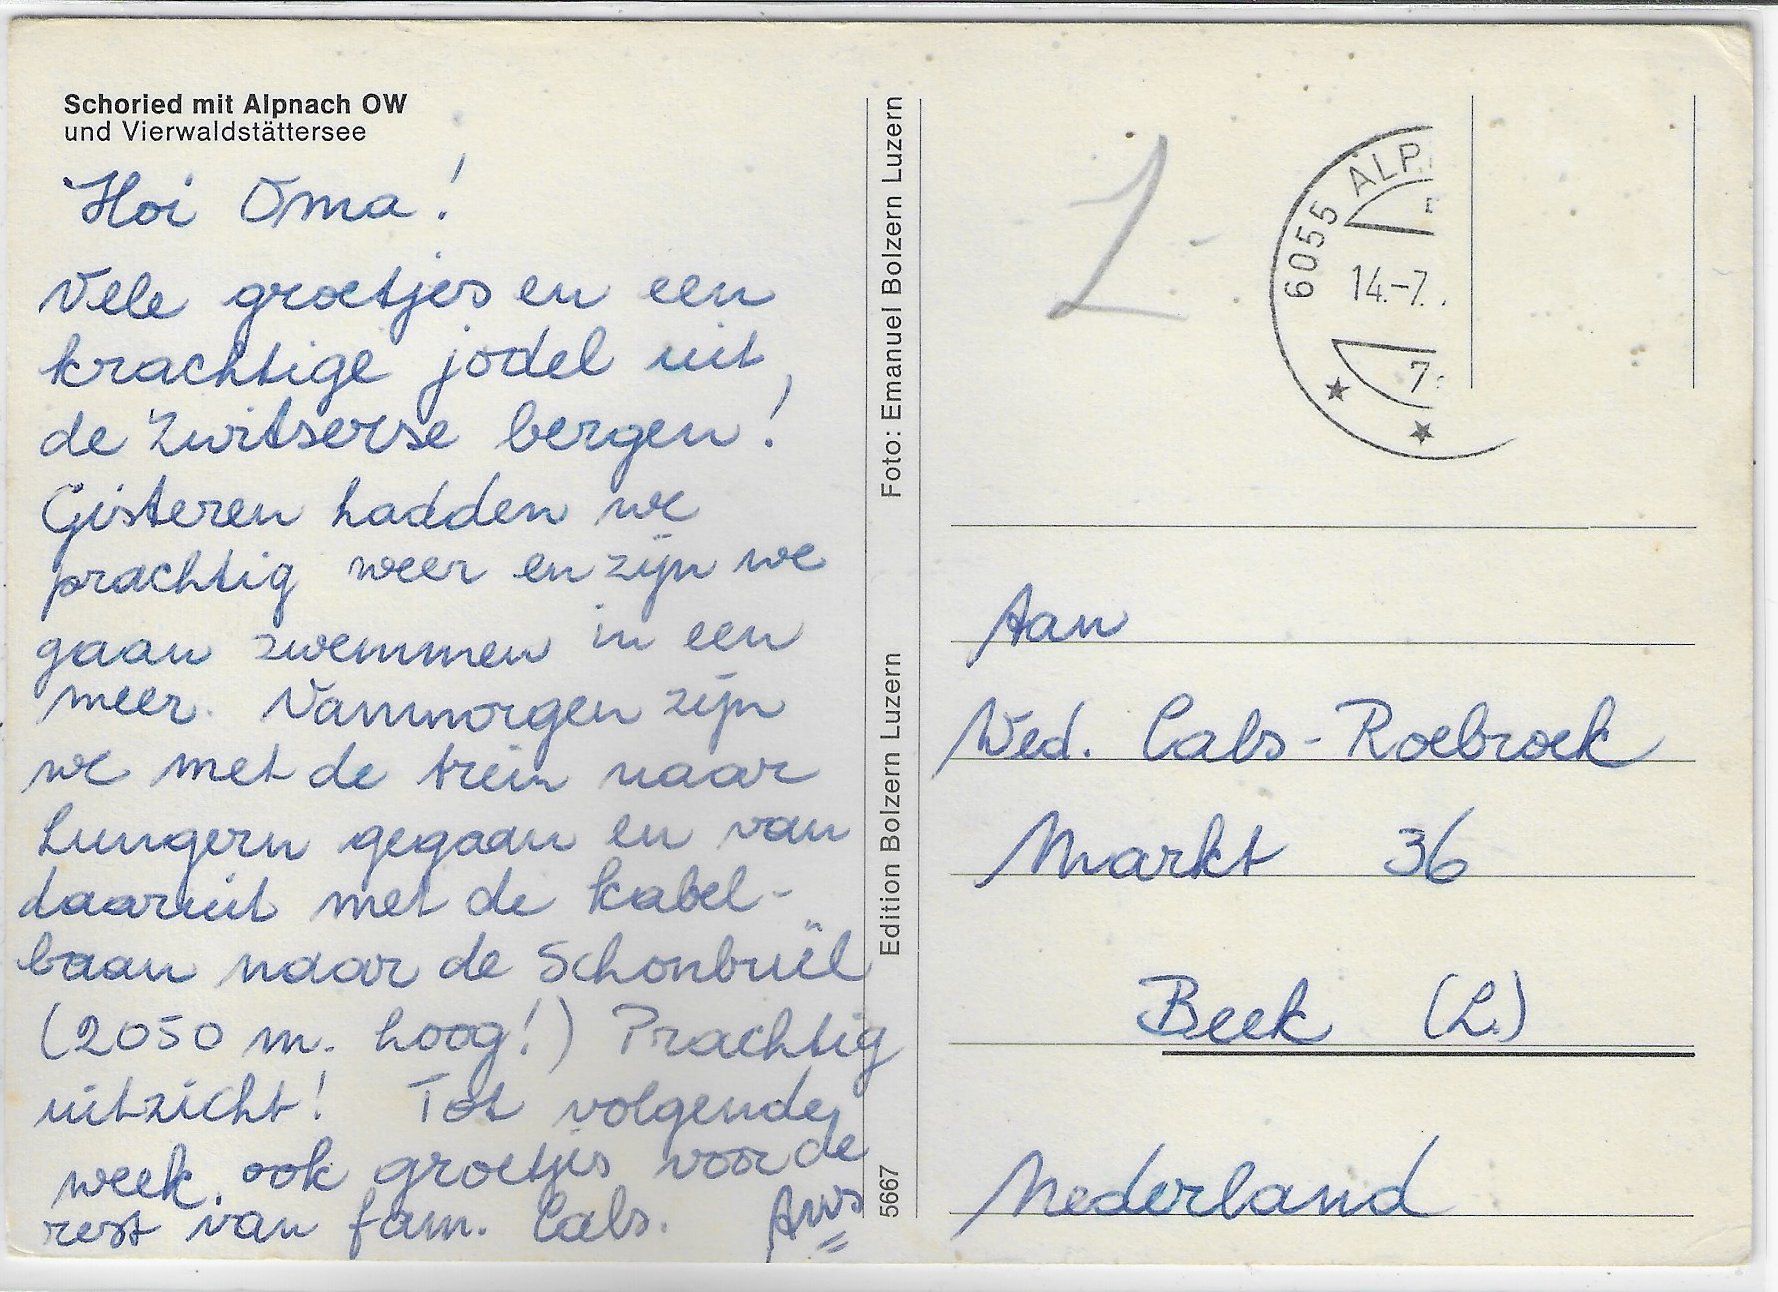 Schoried mit Alpnach OW
und Vierwaldstättersee
Hoi Oma!
Vele groetjes en een
krachtige jodel uit
de Zwitserse bergen!
Gisteren hadden we
prachtig weer en zijn we
gaan zwemmen in een
meer. Vanmorgen zijn
we met de trein naar
Lungern gegaan en van
daaruit met de kabel-
baan naar de Schonbüel
(2050 m. hoog!) Prachtig
uitzicht! Tot volgende
week. ook groetjes voor de
rest van fam. Cals.
Foto: Emanuel Bolzern Luzern
Edition Bolzern Luzern
5667
1-
6055 ALP
14.-7.
7
Aan
Wed. Cals-Roebroek
Markt 36
Beek (L.)
Nederland